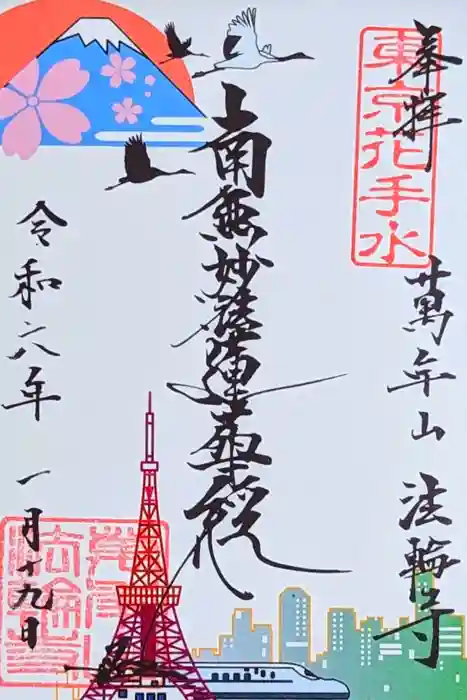 奉拝
東京花手水
萬年山 法輪寺
南無妙法蓮華経
令和六年 一月十九日